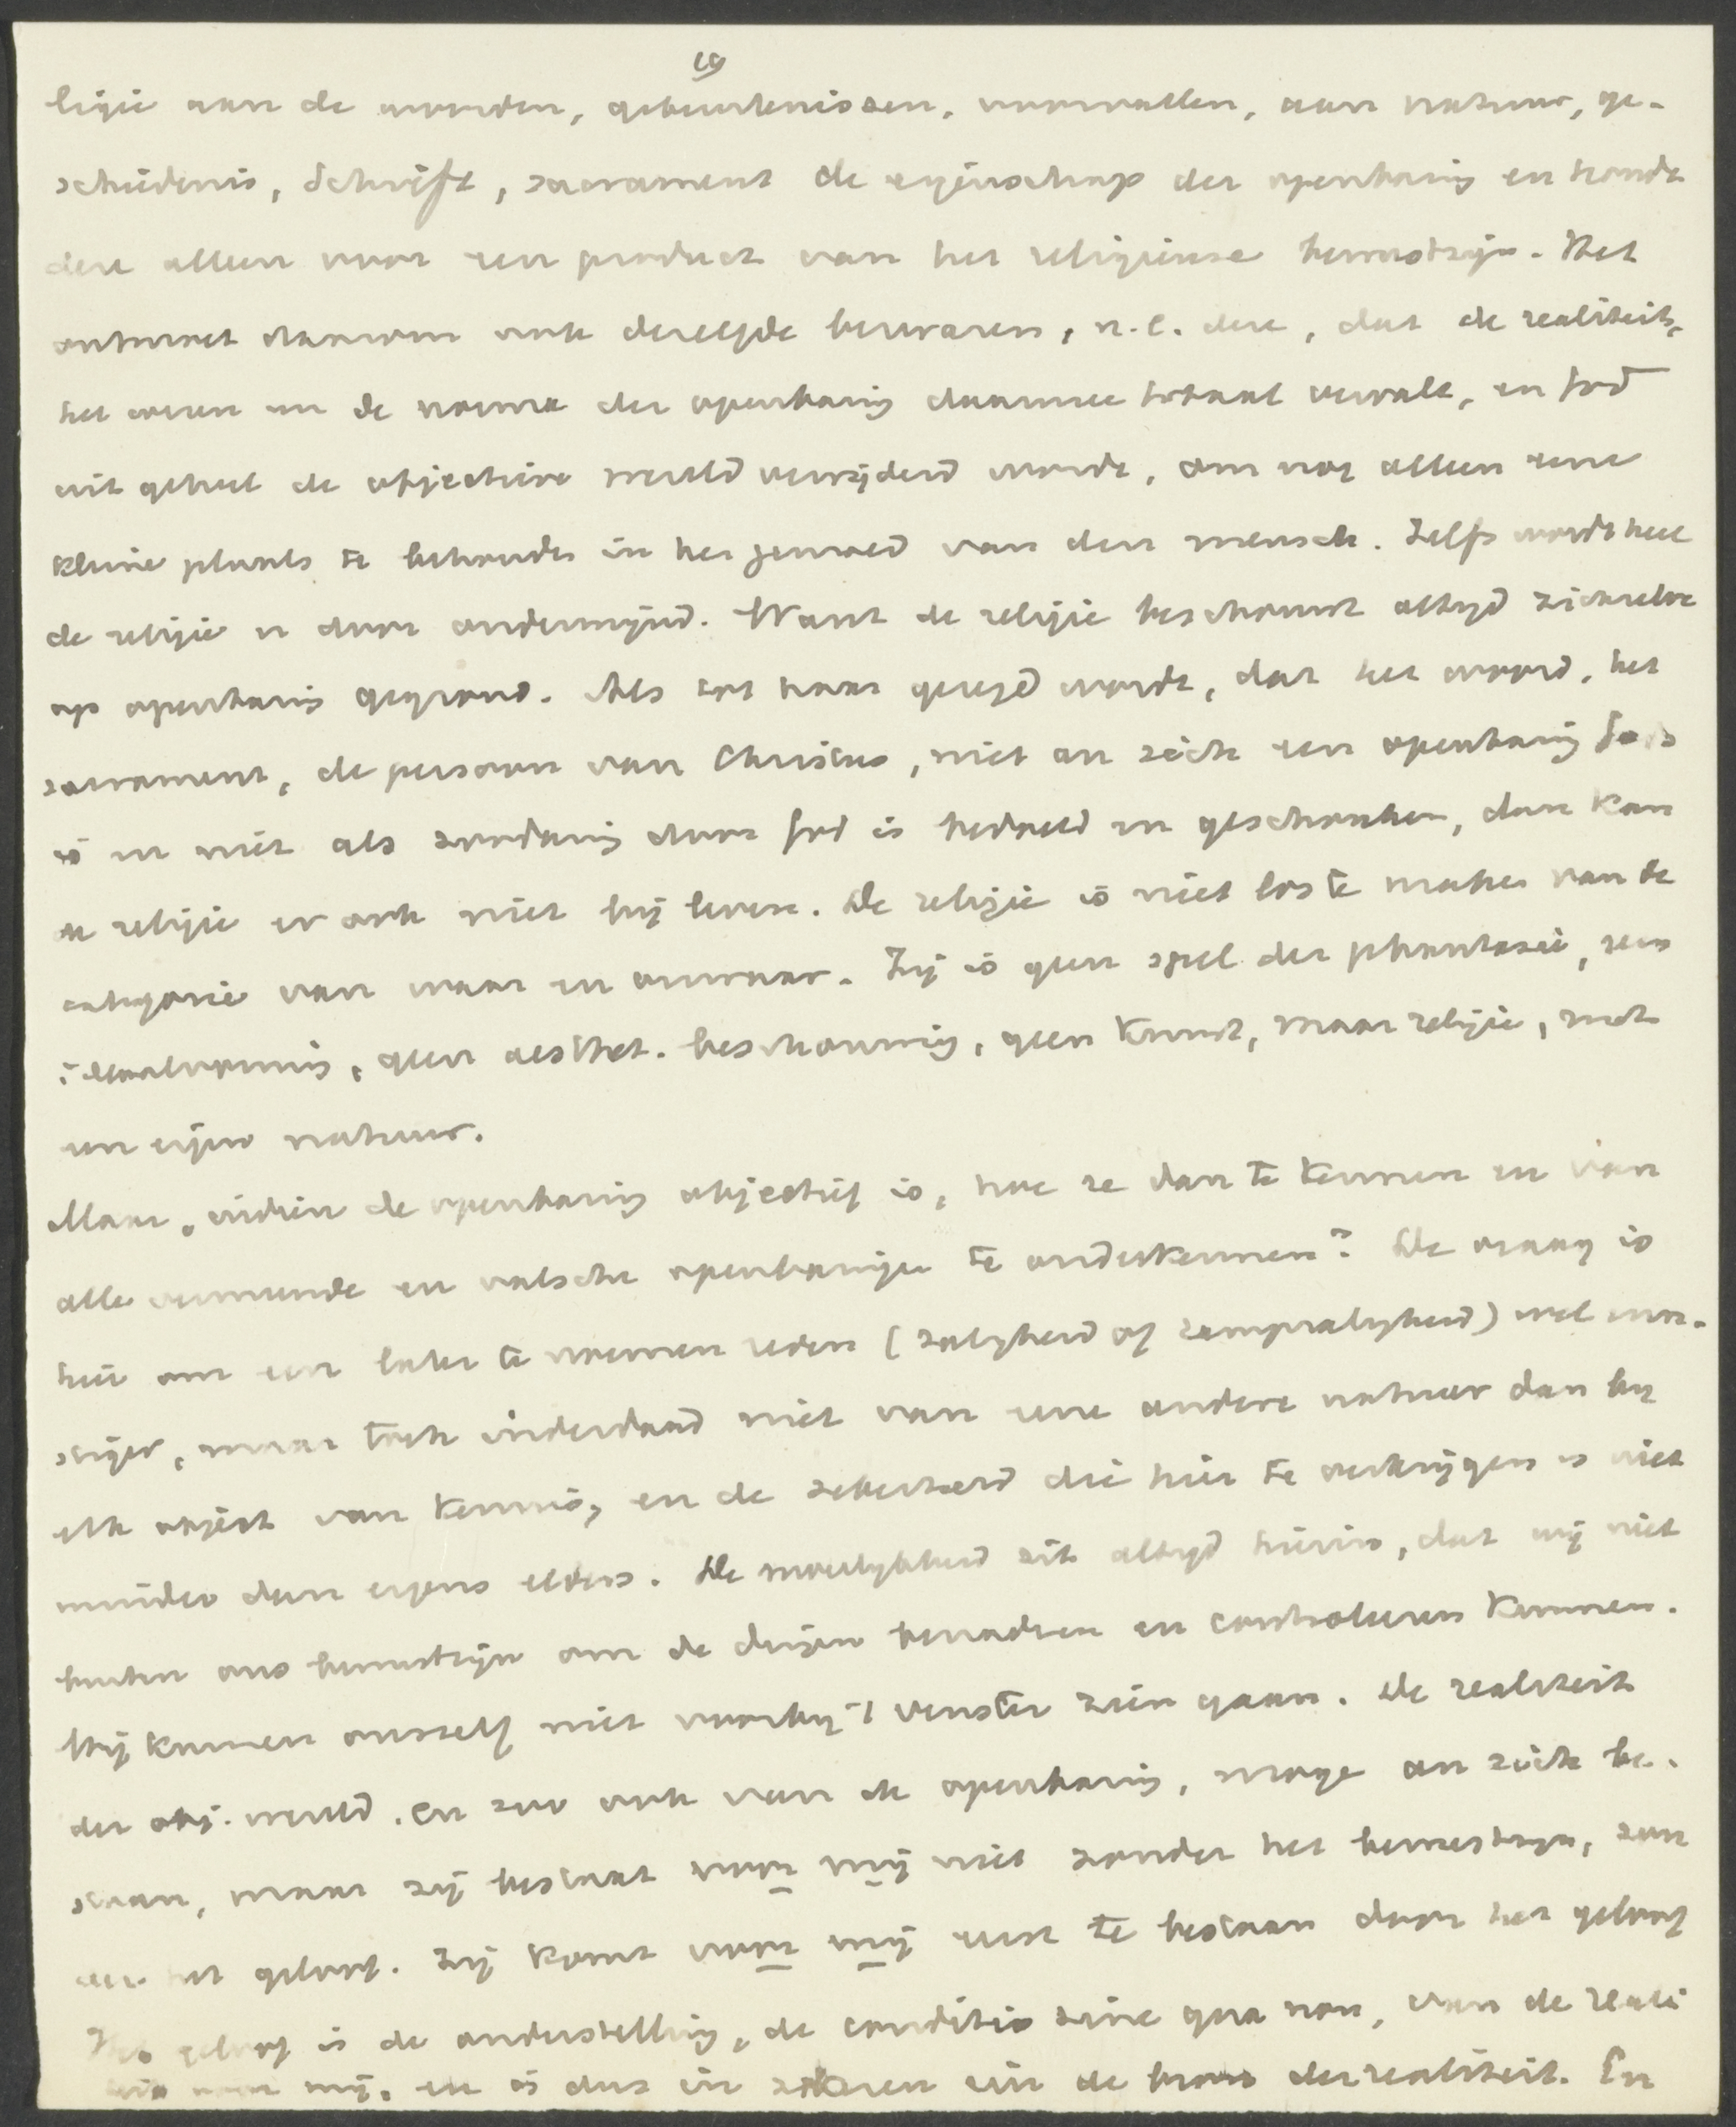 19
ligie aan de woorden, gebeurtenissen, voorvallen, aan natuur, ge-
schiedenis, Schrift, sacrament de eigenschap der openbaring en houdt
deze alleen voor een product van het religieuse bewustzijn. Het
ontmoet daarom ook dezelfde bezwaren, n.l. deze, dat de realiteit,
het wezen en de norma der openbaring daarmee totaal vervalt, en God
uit geheel de objectieve wereld verwijderd wordt, om nog alleen eene
kleine plaats te behouden in het gemoed van den mensch. Zelfs wordt heel
de religie er door ondermijnd. Want de religie beschouwt altijd zichzelve
op openbaring gegrond. Als tot haar gezegd wordt, dat het woord, het
sacrament, de persoon van Christus, niet an sich een openbaring Gods
is en niet als zoodanig door God is bedoeld en geschonken, dan kan
de religie er ook niet bij leven. De religie is niet los te maken van de
categorie van waar en onwaar. Zij is geen spel der phantasie, geen
ideaalvorming, geen aesthet. beschouwing, geen kunst, maar religie, met
een eigen natuur.
Maar, indien de openbaring objectief is, hoe ze dan te kennen en van
alle vermeende en valsche openbaringen te onderkennen? De vraag is
hier om een later te noemen reden (zaligheid of rampzaligheid) wel ern-
stiger, maar toch inderdaad niet van eene andere natuur dan bij
elk object van kennis, en de zekerheid die hier te verkrijgen is niet
minder dan ergens elders. De moeilijkheid zit altijd hierin, dat wij niet
buiten ons bewustzijn om de dingen benaderen en controleeren kunnen.
Wij kunnen onszelf niet voorbij 't venster zien gaan. De realiteit
der obj. wereld. en zoo ook van de openbaring, moge an sich be-
staan, maar zij bestaat voor mij niet zonder het bewustzijn, zon
der het geloof. Zij komt voor mij eerst te bestaan door het geloof
Het geloof is de onderstelling, de conditio sine qua non, van de reali
teit voor mij. en is dus in zekeren zin de bron der realiteit. En